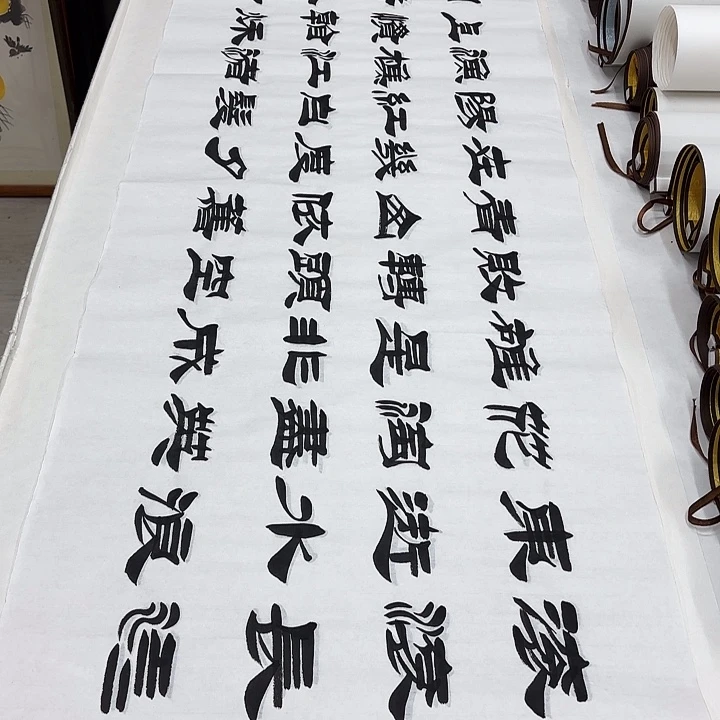 滚滚長江
東逝水浪
花淘盡英
雄是非成
敗轉頭空
青山依舊
在幾度夕
陽紅白髮
漁樵江渚
上慣看秋